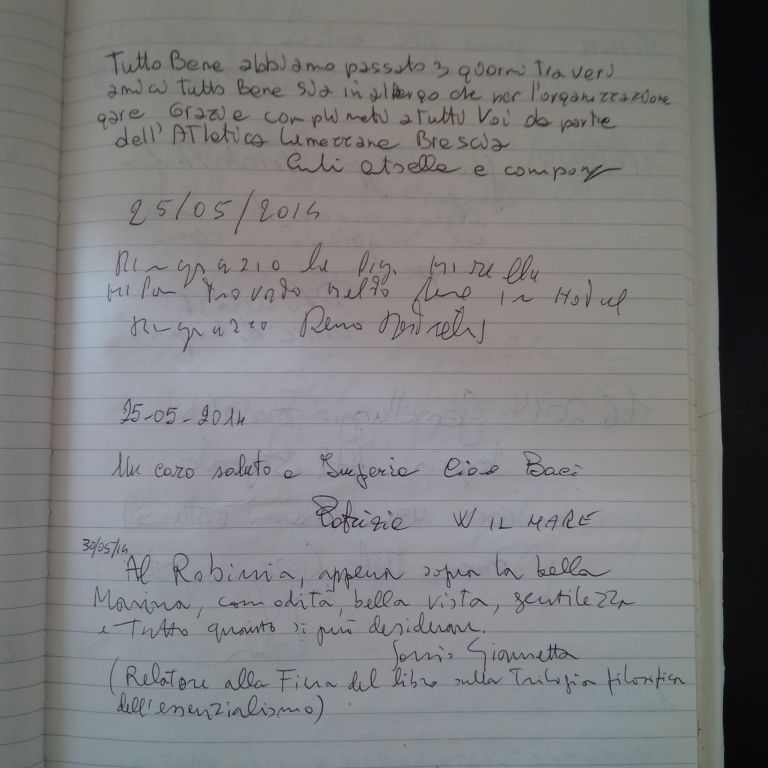 Tutto Bene abbiamo passato 3 giorni tra veri
amici tutto Bene sia in albergo che per l'organizzazione
gare Grazie complimeti a tutti Voi da parte
dell'Atletica Lumezzane Brescia
e
25/05/2014
Ringrazio la Sig. Mirella
trovato bene in Hotel
Ringrazio
25-05-2014
Un caro saluto a Ciao Baci
Patrizia W IL MARE
30/05/14
Al Robinia, appena sopra la bella
Marina, comodità, bella vista, gentilezza
e tutto quanto si può desiderare.
Giannetta
(Relatore alla Fiera del libro sulla Trilogia filosofica
dell'essenzialismo)